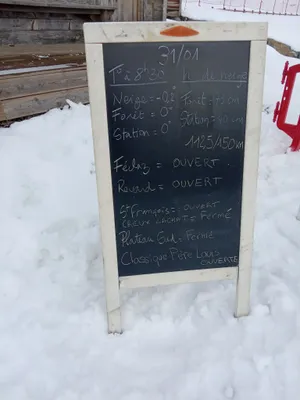 31/01
T° à 8h30 h de neige
Neige = -0,2 Forêt =
Forêt = 0° 
Station = 0°
112,5/150km
Féclaz = OUVERT
Revard = OUVERT
St François = OUVERT
FERMÉ
Plateau Est = FERMÉ
Classique Père Louis
OUVERTE